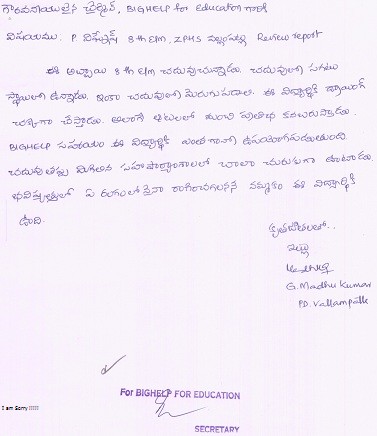 గౌరవనీయులైన ఛైర్మెన్, BIGHELP for Education గారికి
విషయము: P. 8th E/m, ZPHS Review report
ఈ అబ్బాయి 8th E/m చదువుచున్నాడు. చదువులో సగటు
స్థాయిలో ఉన్నాడు. ఇంకా చదువులో మెరుగుపడాలి. ఈ విద్యార్థి డ్రాయింగ్
చక్కగా చేస్తాడు. అలాగే ఆటలలో మంచి ప్రతిభ కనబరుస్తాడు.
BIGHELP సహాయం ఈ విద్యార్థికి ఎంతగానో ఉపయోగపడుతుంది.
చదువు తప్ప మిగిలిన సహపాఠ్యాంశాలలో చాలా చురుకుగా ఉంటాడు.
భవిష్యత్తులో ఏ రంగంలోనైనా రాణించగలడనే నమ్మకం ఈ విద్యార్థికి
ఉంది.
కృతజ్ఞతలతో..
ఇట్లు
G. Madhu Kumar
P.D. Vallampalli
For BIGHELP FOR EDUCATION
SECRETARY
I am Sorry !!!!!